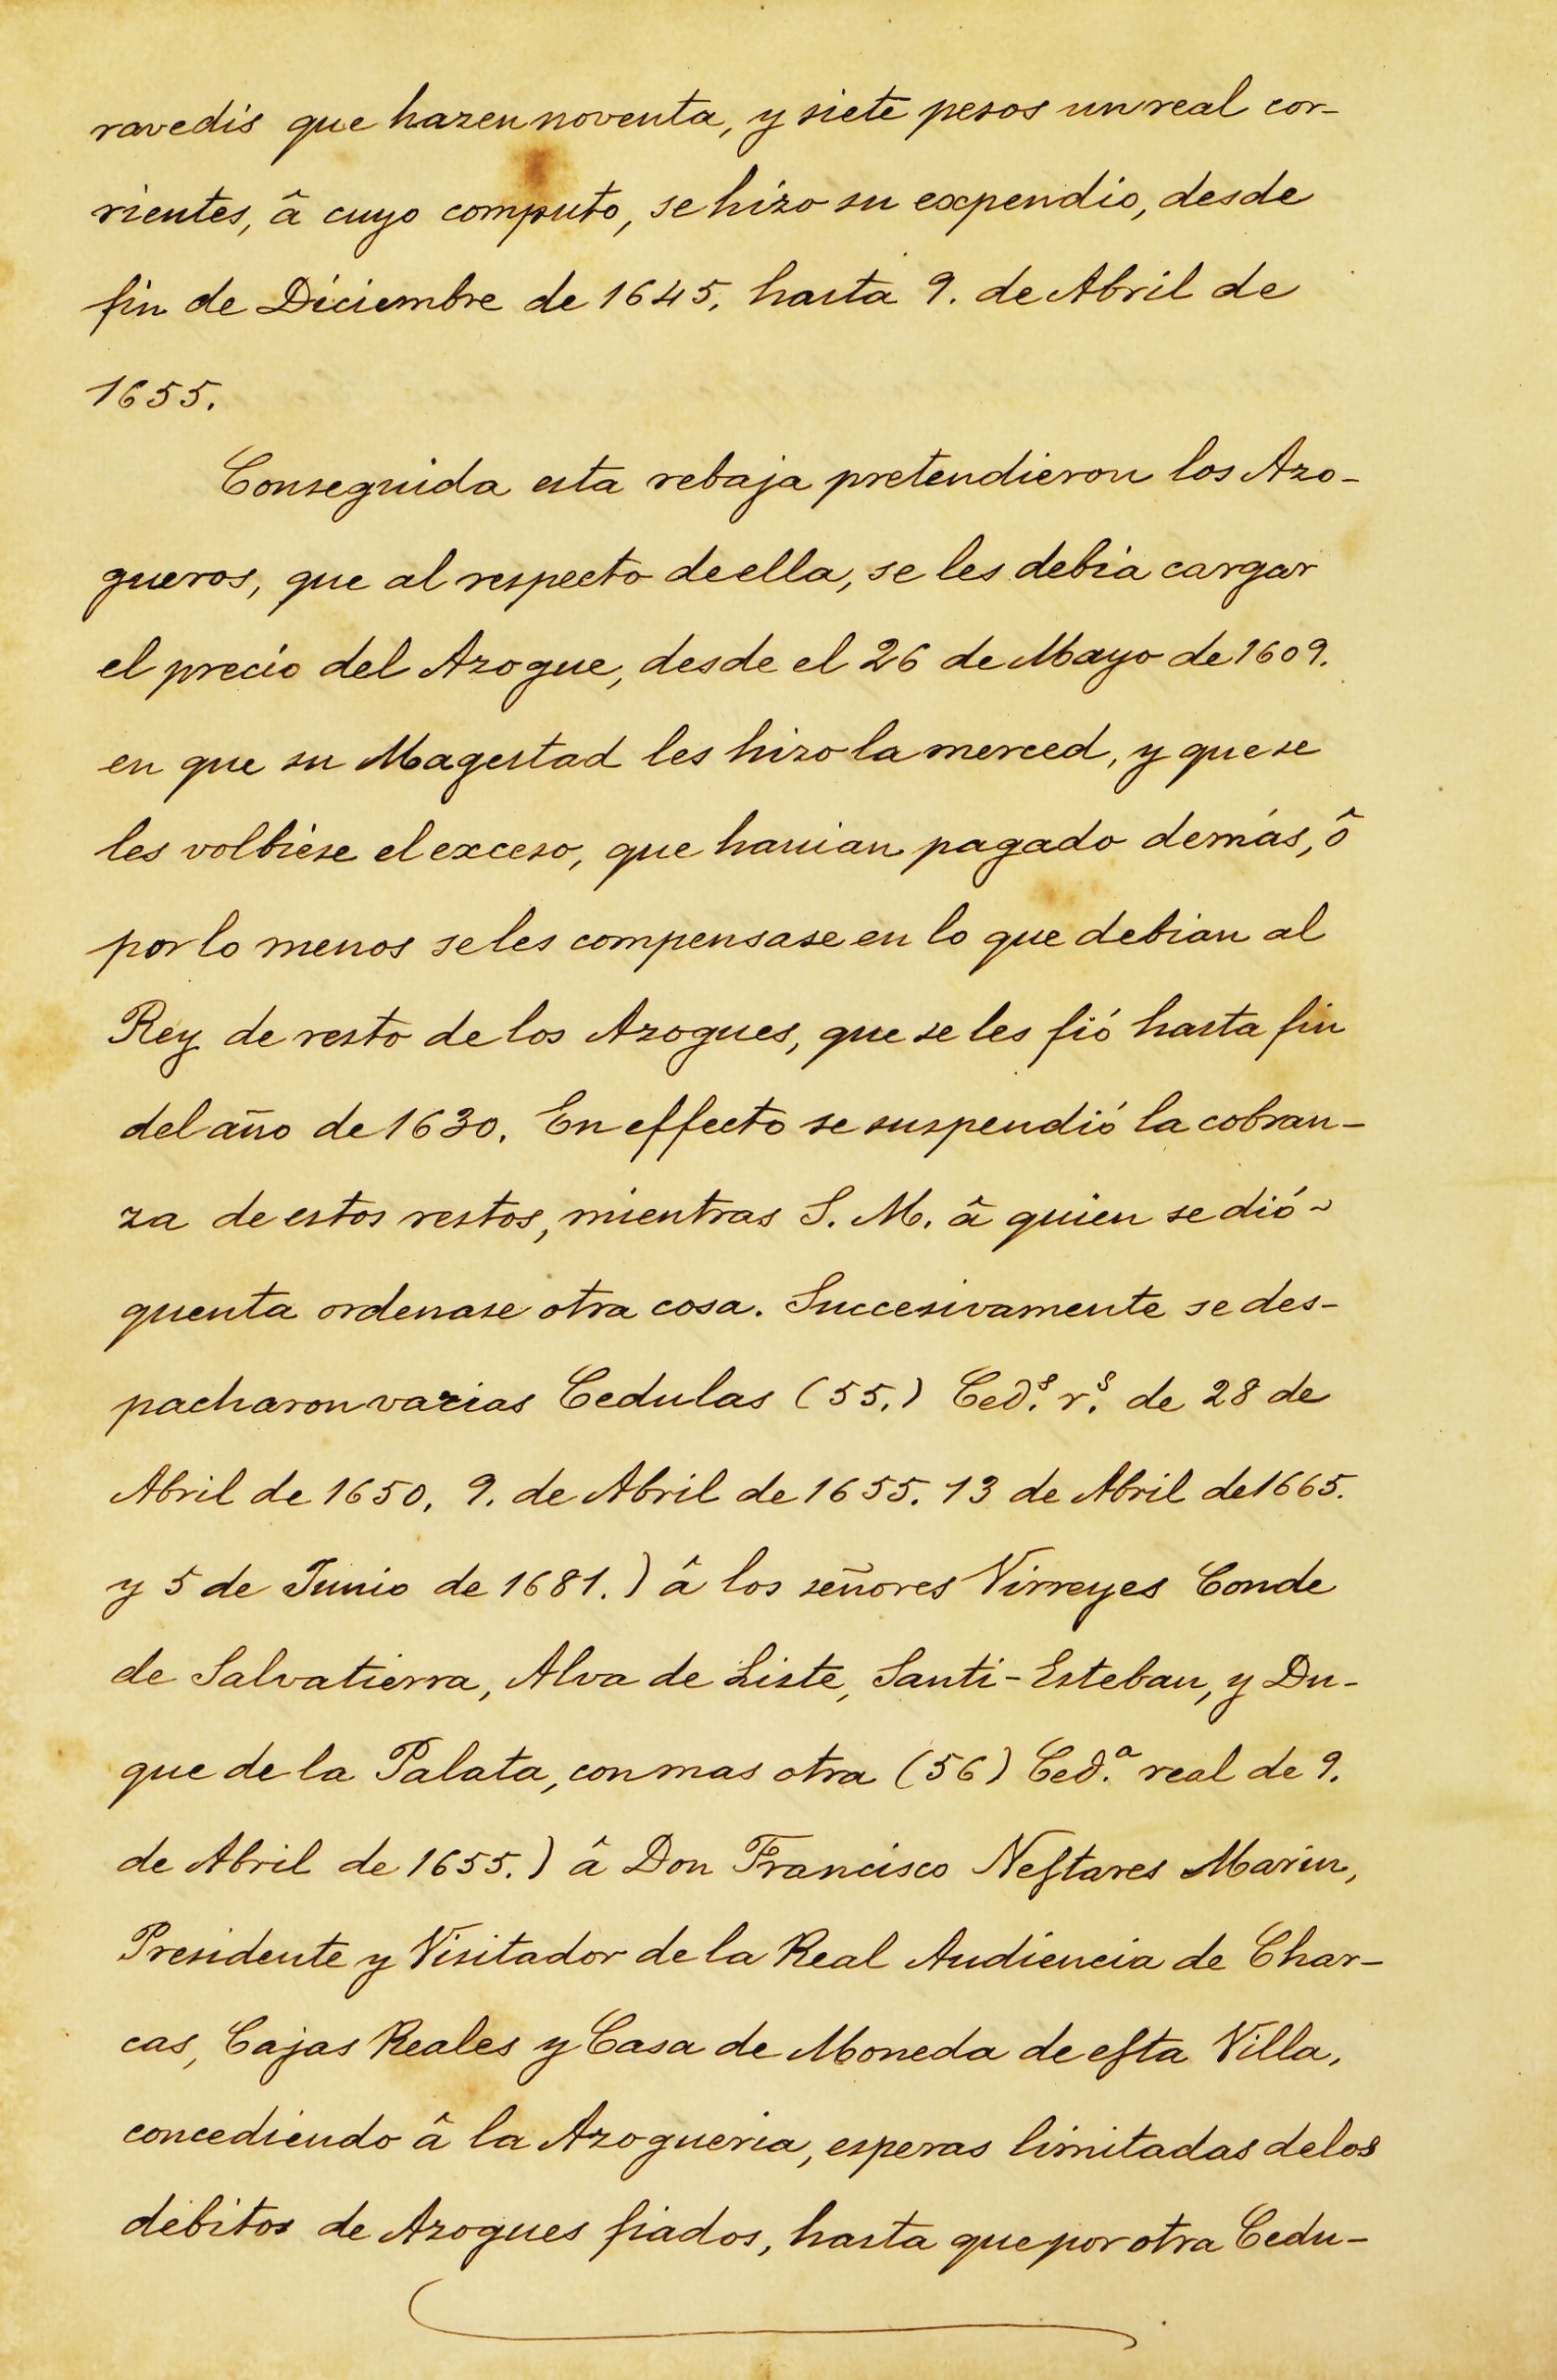 ravedis que hazen noventa, y siete pesos un real cor-
rientes, â cuyo computo, se hizo su expendio, desde
fin de Diciembre de 1645. hasta 9. de Abril de
1655.
Conseguida esta rebaja pretendieron los Azo-
gueros, que al respecto de ella, se les debia cargar
el precio del Azogue, desde el 26 de Mayo de 1609.
en que su Magestad les hizo la merced, y que se
les volbiese el exceso, que hauian pagado demás, ô
por lo menos se les compensase en lo que debian al
Rey de resto de los Azogues, que se les fió hasta fin
del año de 1630. En effecto se suspendió la cobran-
za de estos restos, mientras S. M. â quien se dió
quenta ordenase otra cosa. Succesivamente se des-
pacharon varias Cedulas (55.) Ced.ˢ r.ˢ de 28 de
Abril de 1650. 9. de Abril de 1655. 13 de Abril de 1665.
y 5 de Junio de 1681.) â los señores Virreyes Conde
de Salvatierra, Alva de Liste, Santi-Esteban, y Du-
que de la Palata, con mas otra (56) Ced.ª real de 9.
de Abril de 1655.) â Don Francisco Neſtares Marin,
Presidente y Visitador de la Real Audiencia de Char-
cas, Cajas Reales y Casa de Moneda de eſta Villa,
concediendo â la Azogueria, esperas limitadas de los
debitos de Azogues fiados, hasta que por otra Cedu-